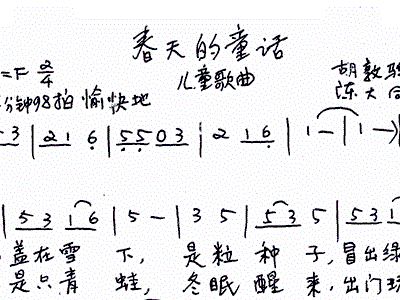 春天的童话
=F 2/4
儿童歌曲
胡敦
分钟98拍 愉快地
陈大
5 3 | 2 1 6 | 5 5 0 3 | 2 1 6 | 1 — | 1 —
| 5 3 1 6 | 5 — | 3 5 | 5 3 5 | 5 3 1
盖在雪 下, 是粒 种 子, 冒出绿
是只青 蛙, 冬眠 醒 来, 出门玩